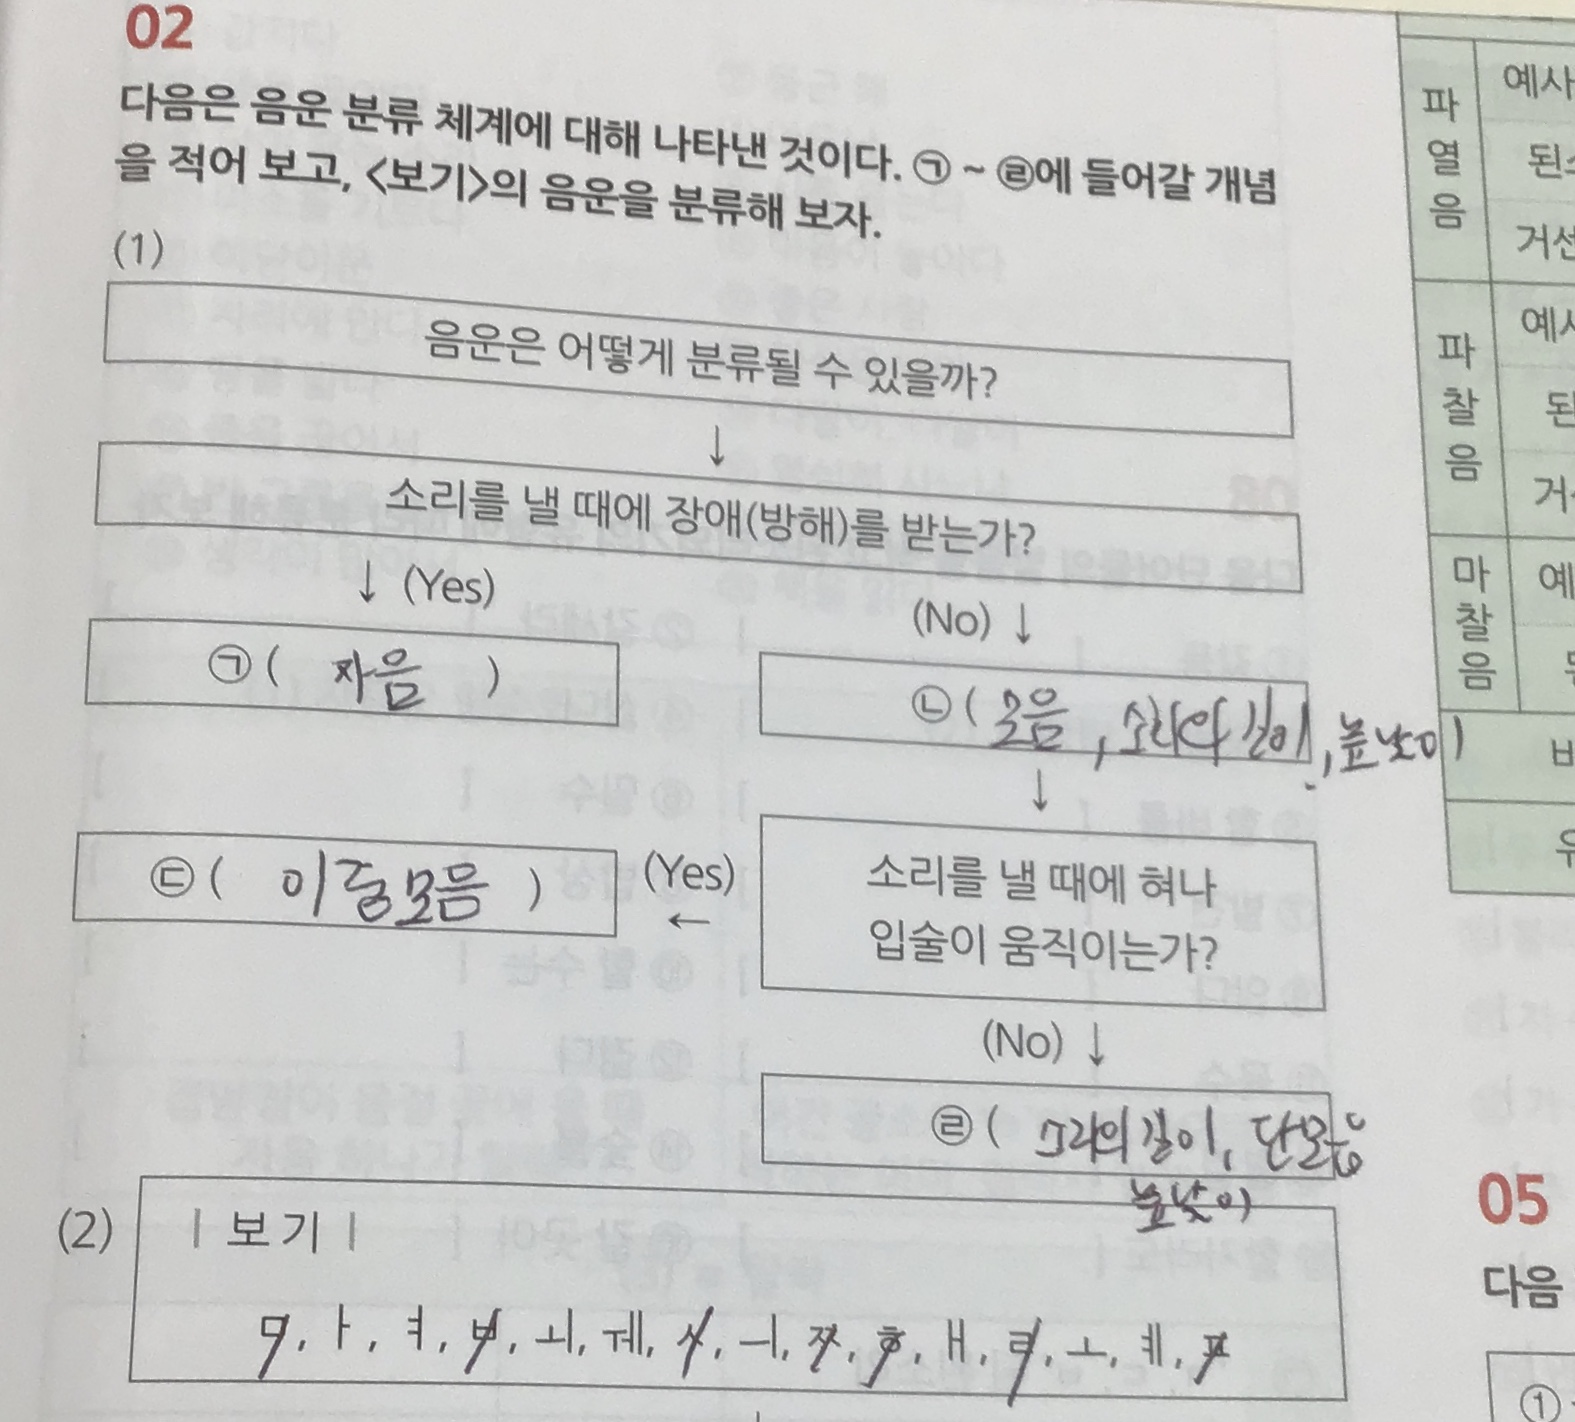 02
다음은 음운 분류 체계에 대해 나타낸 것이다. ㉠ ~ ㉣에 들어갈 개념
을 적어 보고, <보기>의 음운을 분류해 보자.
(1)
음운은 어떻게 분류될 수 있을까?
↓
소리를 낼 때에 장애(방해)를 받는가?
↓ (Yes)
(No) ↓
㉠ ( 자음 )
㉡ ( 모음, 소리의 길이, 높낮이 )
↓
소리를 낼 때에 혀나
입술이 움직이는가?
(Yes)
←
㉢ ( 이중모음 )
(No) ↓
㉣ ( 소리의 길이, 단모음
높낮이
(2)
| 보 기 |
ㅁ, ㅏ, ㅕ, ㅂ, ㅚ, ㅞ, ㅅ, ㅡ, ㅉ, ㅎ, ㅐ, ㄹ, ㅗ, ㅖ, ㅍ
파열음
예사
된
거센
파찰음
예사
된
거
마찰음
예
05
다음
①